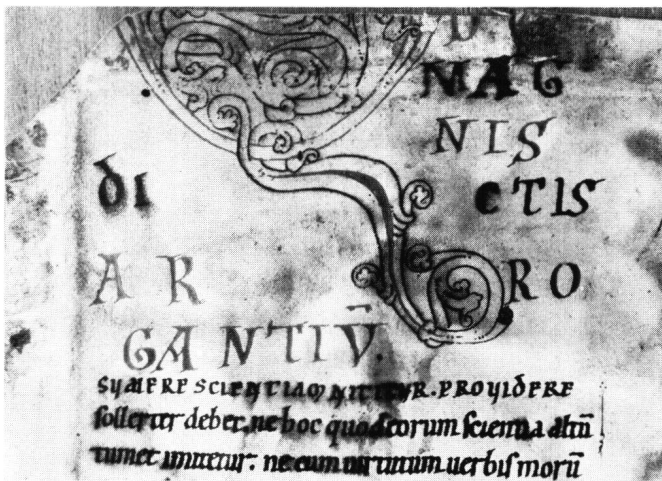 MAG
NIS
ðI CTIS
AR RO
GANTIV̄.
SUMERE SCIENTIAM NITITUR. PROVIDERE
sollerter debet. ne hoc quod eorum scientia altū
tumet imitetur: ne cum uirtutum uerbis morū